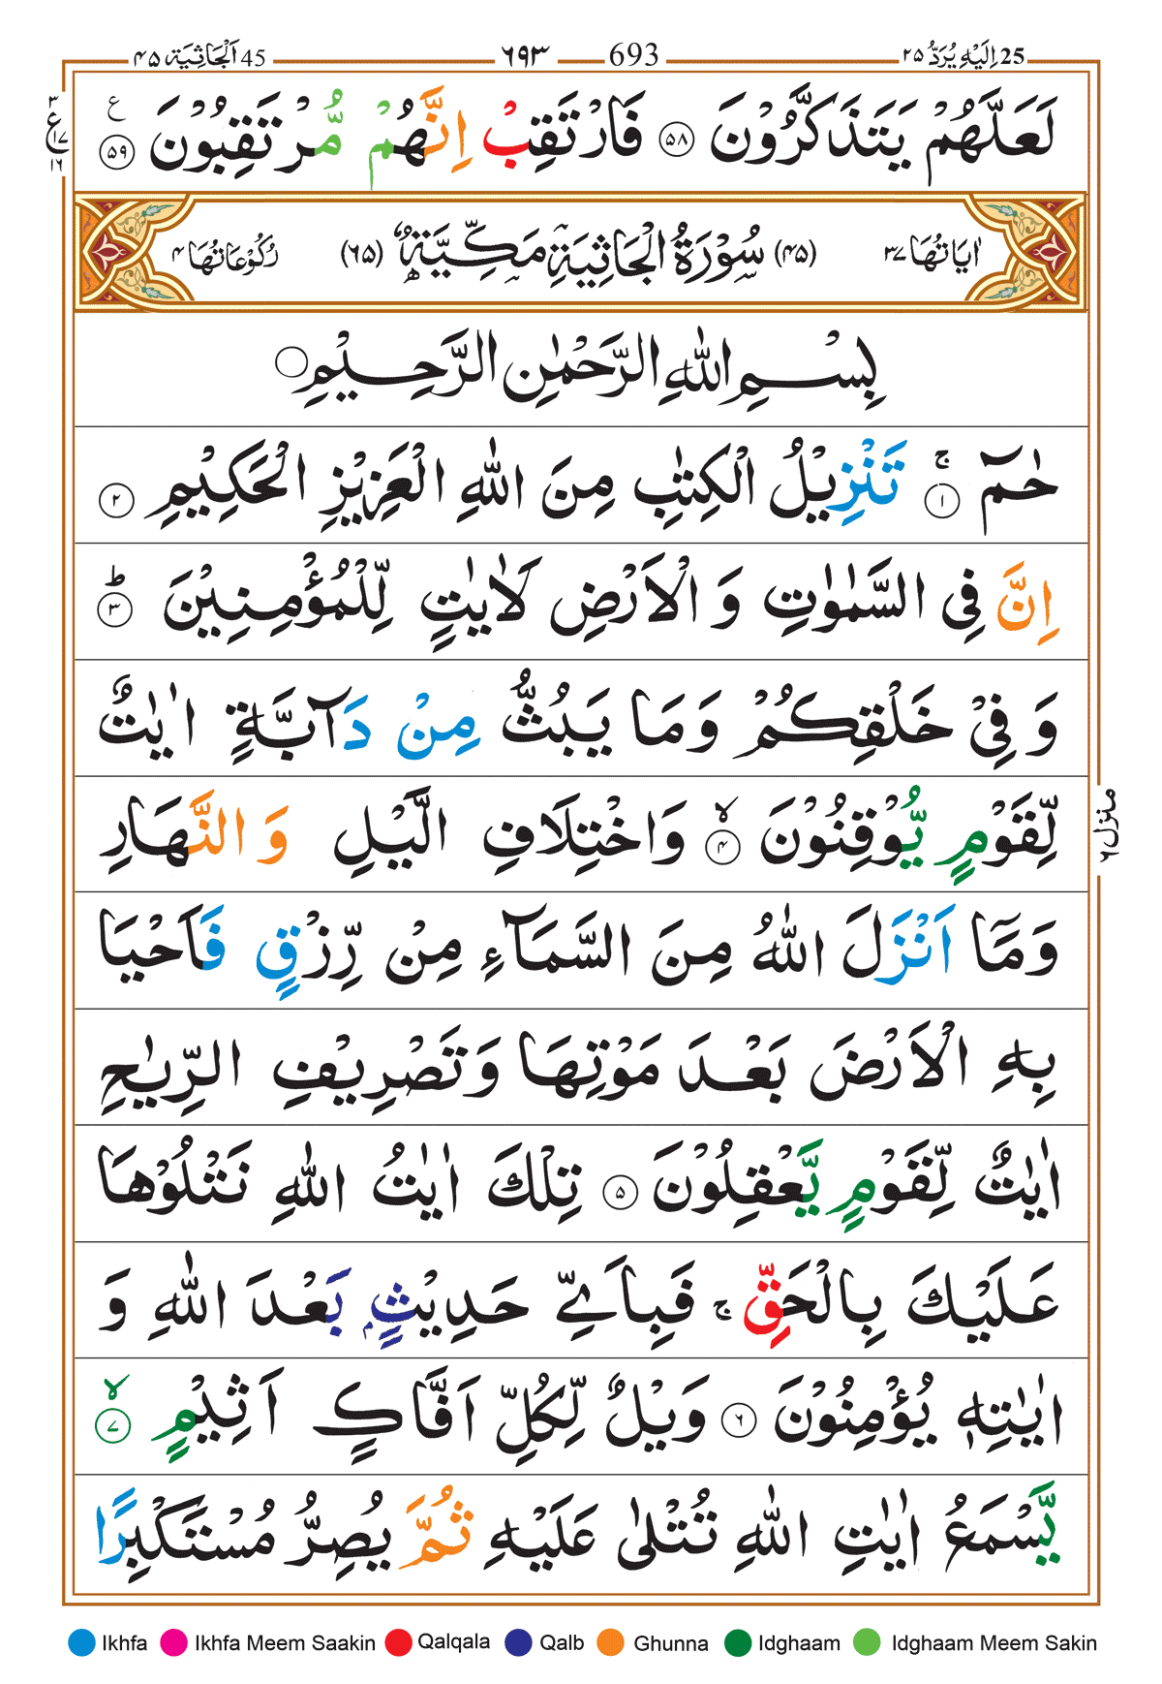 45 اَلْجَاثِيَة ۴۵ ۶۹۳ 693 25 اِلَيْهِ يُرَدُّ ۲۵
لَعَلَّهُمْ يَتَذَكَّرُوْنَ ۵۸ فَارْتَقِبْ اِنَّهُمْ مُّرْتَقِبُوْنَ ۵۹ ع
۳ ع ۱۷ ۱۶
اٰيَاتُهَا ۳۷ (۴۵) سُوْرَةُ الْجَاثِيَةِ مَكِّيَّةٌ (۶۵) رُكُوْعَاتُهَا ۴
بِسْمِ اللّٰهِ الرَّحْمٰنِ الرَّحِيْمِ
حٰمٓ ۚ ۱ تَنْزِيْلُ الْكِتٰبِ مِنَ اللّٰهِ الْعَزِيْزِ الْحَكِيْمِ ۲
اِنَّ فِى السَّمٰوٰتِ وَ الْاَرْضِ لَاٰيٰتٍ لِّلْمُؤْمِنِيْنَ ؕ ۳
وَ فِيْ خَلْقِكُمْ وَمَا يَبُثُّ مِنْ دَآبَّةٍ اٰيٰتٌ
لِّقَوْمٍ يُّوْقِنُوْنَ ۙ ۴ وَاخْتِلَافِ الَّيْلِ وَ النَّهَارِ
وَمَاۤ اَنْزَلَ اللّٰهُ مِنَ السَّمَآءِ مِنْ رِّزْقٍ فَاَحْيَا
بِهِ الْاَرْضَ بَعْدَ مَوْتِهَا وَتَصْرِيْفِ الرِّيٰحِ
اٰيٰتٌ لِّقَوْمٍ يَّعْقِلُوْنَ ۵ تِلْكَ اٰيٰتُ اللّٰهِ نَتْلُوْهَا
عَلَيْكَ بِالْحَقِّ ۚ فَبِاَيِّ حَدِيْثٍۭ بَعْدَ اللّٰهِ وَ
اٰيٰتِهٖ يُؤْمِنُوْنَ ۶ وَيْلٌ لِّكُلِّ اَفَّاكٍ اَثِيْمٍ ۙ ۷
يَّسْمَعُ اٰيٰتِ اللّٰهِ تُتْلٰى عَلَيْهِ ثُمَّ يُصِرُّ مُسْتَكْبِرًا
منزل ۶
Ikhfa Ikhfa Meem Saakin Qalqala Qalb Ghunna Idghaam Idghaam Meem Sakin